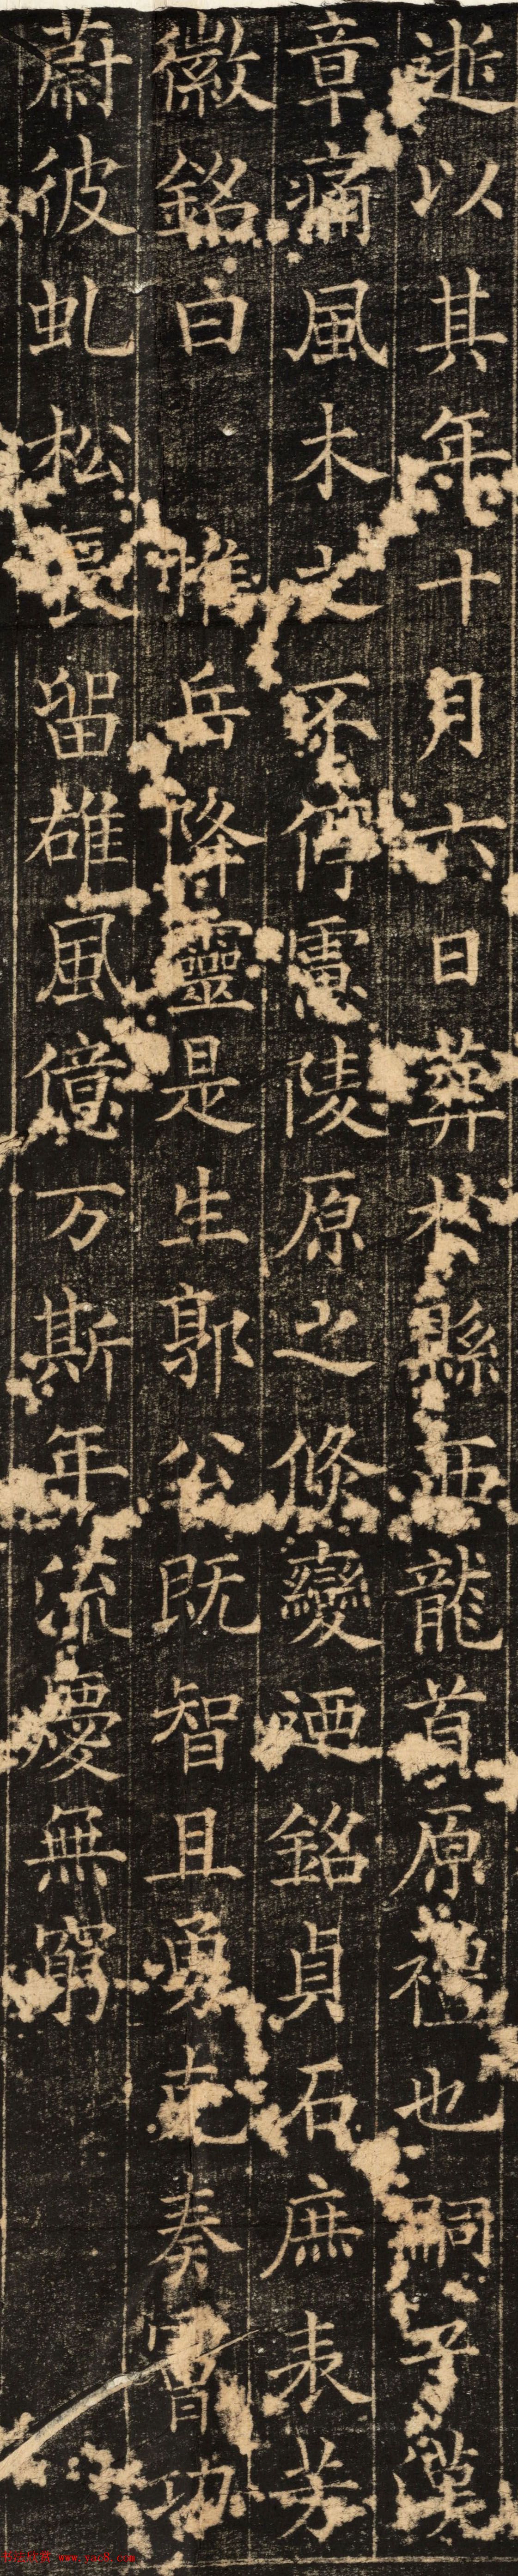 逝以其年十月六日葬於縣西龍首原禮也嗣子漢
章痛風木之不停慮陵原之倏變迺銘貞石庶表芳
徽銘曰惟岳降靈是生郭公既智且勇克奏膚功
蔚彼虬松長留雄風億万斯年流慶無窮
www.yac8.com